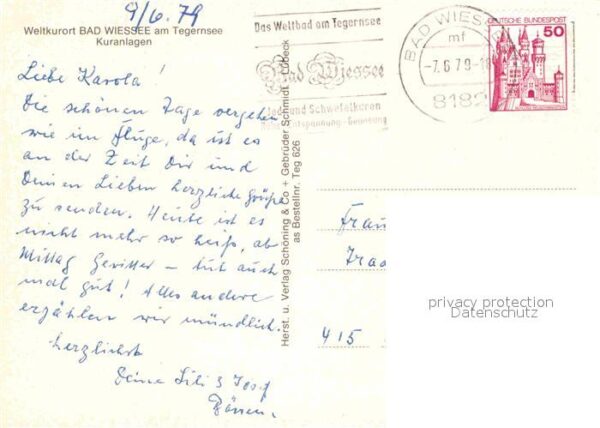 9/6.79
Weltkurort BAD WIESSEE am Tegernsee
Kuranlagen
Liebe Karola!
Die schönen Tage vergehen
wie im Fluge, da ist es
an der Zeit Dir und
Deinen Lieben herzliche Grüße
zu senden. Heute ist es
nicht mehr so heiß, ab
Mittag Gewitter – tut auch
mal gut! Alles andere
erzählen wir mündlich.
Herzlichst
Deine Lili & Josef
Herst. u. Verlag Schöning & Co + Gebrüder Schmidt, Lübeck
as Bestellnr. Teg 626
Das Weltbad am Tegernsee
Bad Wiessee
Jod und Schwefelkuren
Entspannung - Genesung
BAD WIESSEE
mf
-7.6.79-18
8182
DEUTSCHE BUNDESPOST
50
Frau
415
privacy protection
Datenschutz